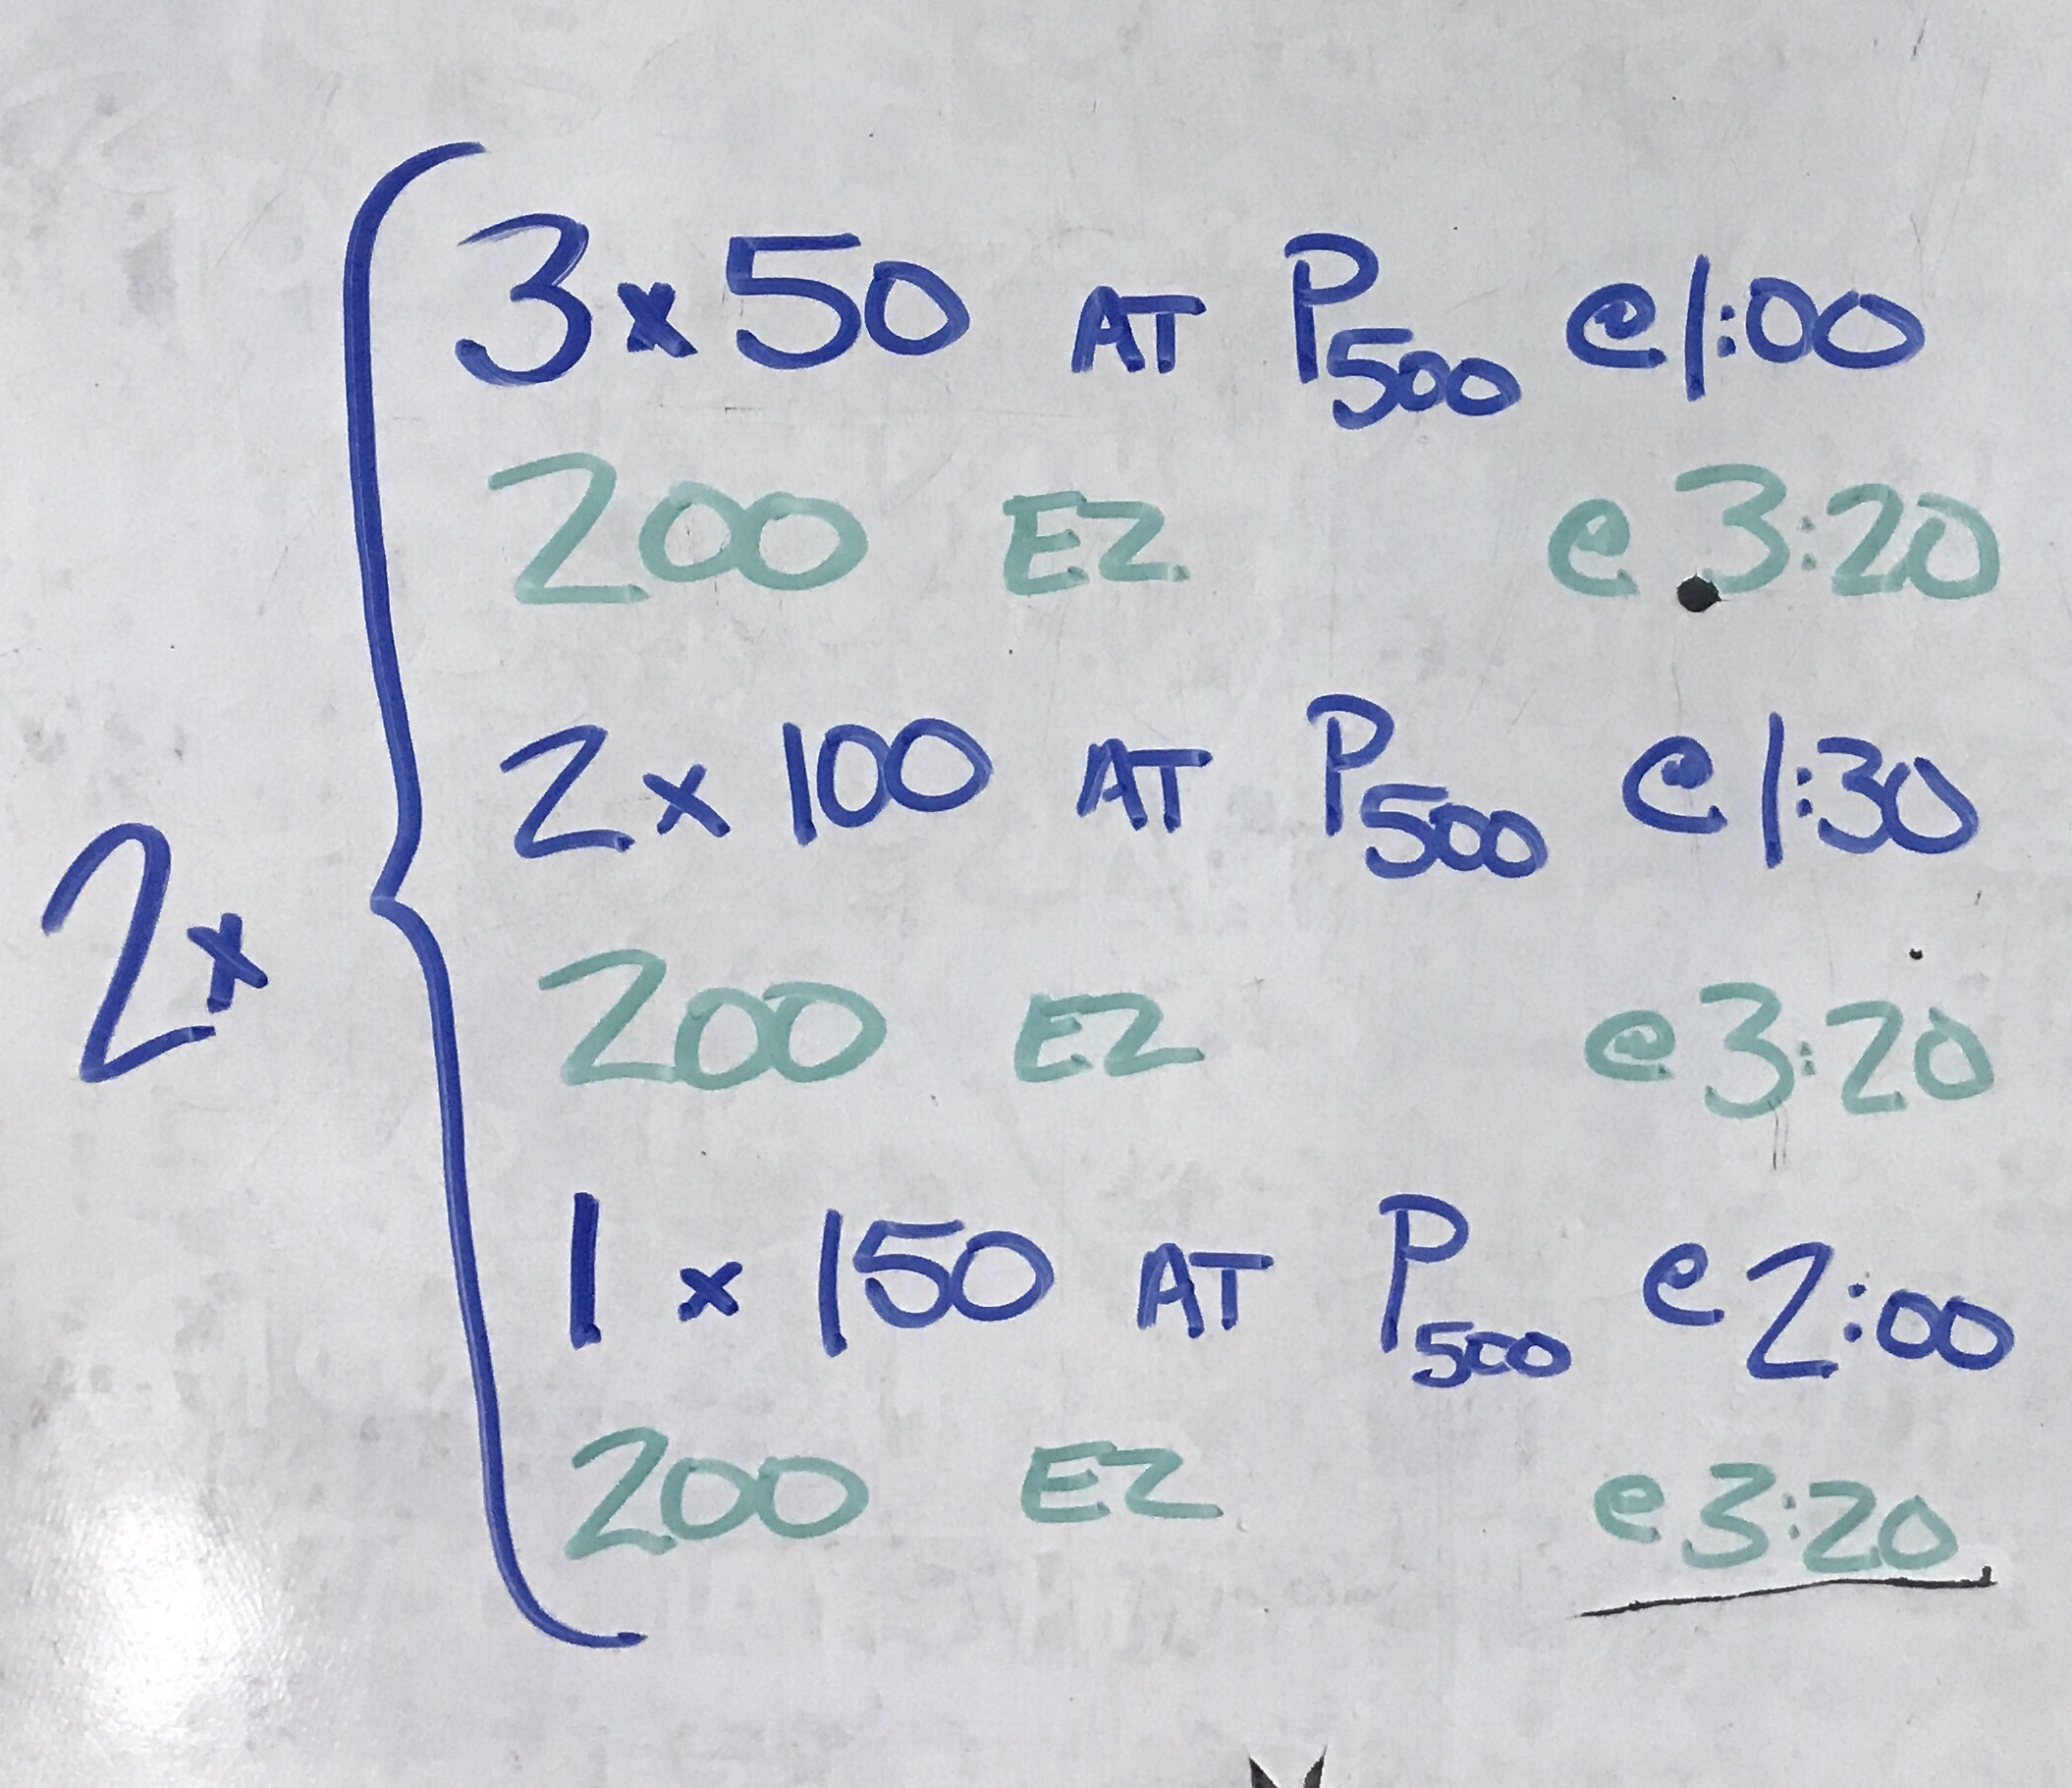 3x50 AT P500 @1:00
200 EZ @3:20
2x100 AT P500 @1:30
2x
200 EZ @3:20
1x150 AT P500 @2:00
200 EZ @3:20